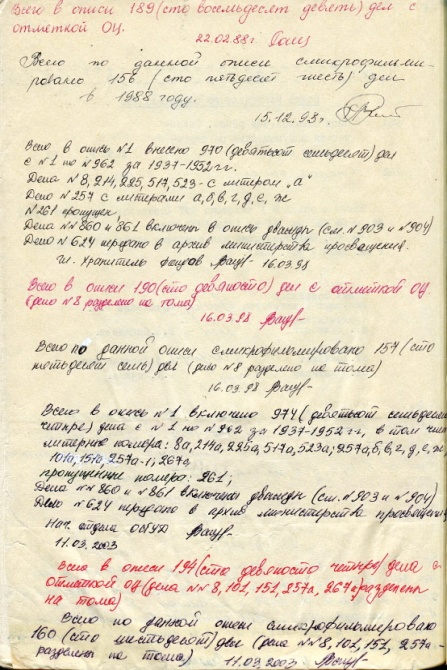 Всего в описи 189 (сто восемьдесят девять) дел с
отметкой ОЦ.
22.02.88г.
Всего по данной описи смикрофильми-
ровано 156 (сто пятьдесят шесть) дел
в 1988 году.
15.12.93г.
Всего в опись №1 внесено 970 (девятьсот семьдесят) дел
с №1 по №962 за 1937-1952гг.
Дела №8, 214, 225, 517, 523 - с литером „а"
Дело №257 с литерами а, б, в, г, д, е, ж
№261 пропущен,
Дела №№860 и 861 включены в опись дважды (см. №903 и №904)
Дело №624 передано в архив министерства просвещения.
Гл. хранитель фондов 16.03.98
Всего в описи 190 (сто девяносто) дел с отметкой ОЦ
(дело №8 разделено на тома)
16.03.98
Всего по данной описи смикрофильмировано 157 (сто
пятьдесят семь) дел (дело №8 разделено на тома)
16.03.98
Всего в опись №1 включено 974 (девятьсот семьдесят
четыре) дела с №1 по №962 за 1937-1952гг, в том чис
литерные номера: 8а, 214а, 225а, 517а, 523а; 257а, б, в, г, д, е, ж,
101а, 151а, 257а-1; 267а
пропущенные номера: 261;
Дела №№860 и 861 включены дважды (см. №903 и №904)
Дело №624 передано в архив министерства просвещения
Нач. отдела
11.03.2003
Всего в описи 194 (сто девяносто четыре) дела с
отметкой ОЦ (дела №№8, 101, 151, 257а, 267а разделены
на тома)
Всего по данной описи смикрофильмировано
160 (сто шестьдесят) дел (дела №№8, 101, 151, 257а
разделены на тома) 11.03.2003